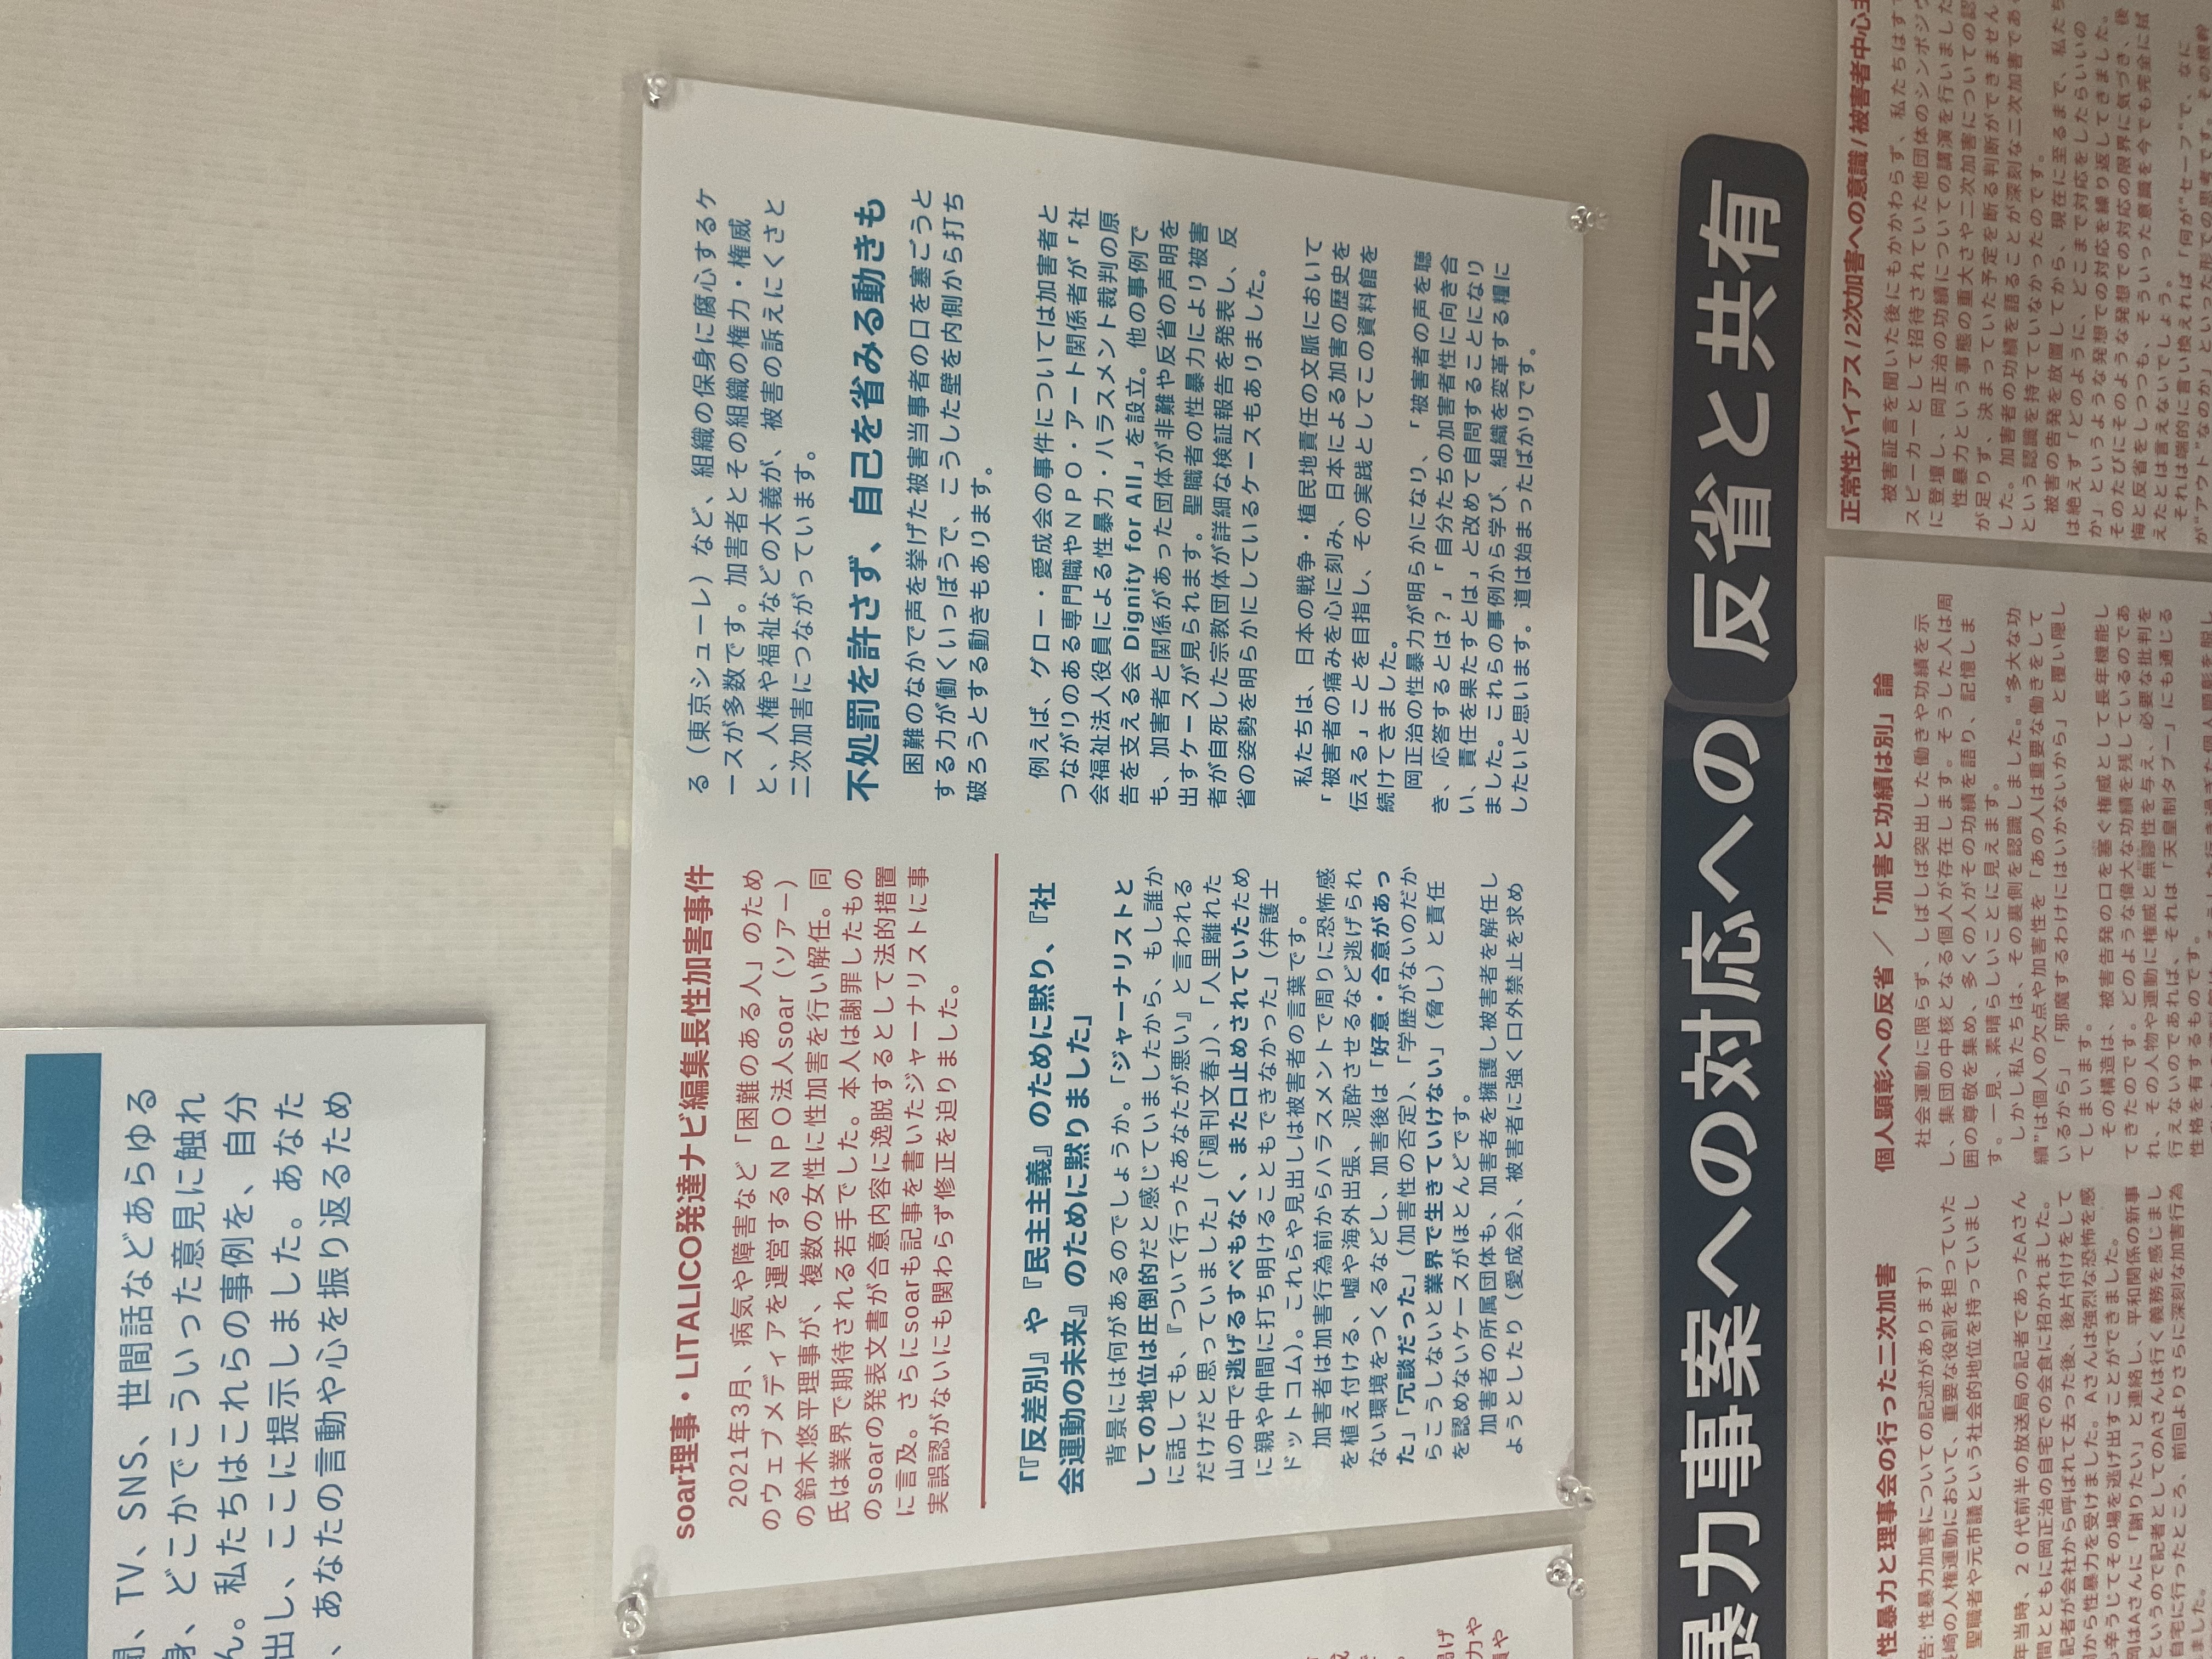 聞、TV、SNS、世間話などあらゆる
身、どこかでこういった意見に触れ
ん。私たちはこれらの事例を、自分
出し、ここに提示しました。あなた
、あなたの言動や心を振り返るため
soar理事・LITALICO発達ナビ編集長性加害事件
2021年3月、病気や障害など「困難のある人」のため
のウェブメディアを運営するNPO法人soar（ソアー）
の鈴木悠平理事が、複数の女性に性加害を行い解任。同
氏は業界で期待される若手でした。本人は謝罪したもの
のsoarの発表文書が合意内容に逸脱するとして法的措置
に言及。さらにsoarも記事を書いたジャーナリストに事
実誤認がないにも関わらず修正を迫りました。
「『反差別』や『民主主義』のために黙り、『社
会運動の未来』のために黙りました」
背景には何があるのでしょうか。「ジャーナリストと
しての地位は圧倒的だと感じていましたから、もし誰か
に話しても、『ついて行ったあなたが悪い』と言われる
だけだと思っていました」（「週刊文春」）、「人里離れた
山の中で逃げるすべもなく、また口止めされていたため
に親や仲間に打ち明けることもできなかった」（弁護士
ドットコム）。これらや見出しは被害者の言葉です。
加害者は加害行為前からハラスメントで周りに恐怖感
を植え付ける、嘘や海外出張、泥酔させるなど逃げられ
ない環境をつくるなどし、加害後は「好意・合意があっ
た」「冗談だった」（加害性の否定）、「学歴がないのだか
らこうしないと業界で生きていけない」（脅し）と責任
を認めないケースがほとんどです。
加害者の所属団体も、加害者を擁護し被害者を解任し
ようとしたり（愛成会）、被害者に強く口外禁止を求め
る（東京シューレ）など、組織の保身に腐心するケ
ースが多数です。加害者とその組織の権力・権威
と、人権や福祉などの大義が、被害の訴えにくさと
二次加害につながっています。
不処罰を許さず、自己を省みる動きも
困難のなかで声を挙げた被害当事者の口を塞ごうと
する力が働くいっぽうで、こうした壁を内側から打ち
破ろうとする動きもあります。
例えば、グロー・愛成会の事件については加害者と
つながりのある専門職やNPO・アート関係者が「社
会福祉法人役員による性暴力・ハラスメント裁判の原
告を支える会 Dignity for All」を設立。他の事例で
も、加害者と関係があった団体が非難や反省の声明を
出すケースが見られます。聖職者の性暴力により被害
者が自死した宗教団体が詳細な検証報告を発表し、反
省の姿勢を明らかにしているケースもありました。
私たちは、日本の戦争・植民地責任の文脈において
「被害者の痛みを心に刻み、日本による加害の歴史を
伝える」ことを目指し、その実践としてこの資料館を
続けてきました。
岡正治の性暴力が明らかになり、「被害者の声を聴
き、応答するとは？」「自分たちの加害者性に向き合
い、責任を果たすとは」と改めて自問することになり
ました。これらの事例から学び、組織を変革する糧に
したいと思います。道は始まったばかりです。
暴力事案への対応への 反省と共有
性暴力と理事会の行った二次加害
告：性暴力加害についての記述があります）
長崎の人権運動において、重要な役割を担っていた
聖職者や元市議という社会的地位を持っていまし
年当時、20代前半の放送局の記者であったAさん
間とともに岡正治の自宅での会食に招かれました。
記者が会社から呼ばれて去った後、後片付けをして
から性暴力を受けました。Aさんは強烈な恐怖を感
も辛うじてその場を逃げ出すことができました。
岡はAさんに「謝りたい」と連絡し、平和関係の新事
というので記者としてのAさんは行く義務を感じまし
自宅に行ったところ、前回よりさらに深刻な加害行為
ました。
個人顕彰への反省 ／「加害と功績は別」論
社会運動に限らず、しばしば突出した働きや功績を示
し、集団の中核となる個人が存在します。そうした人は周
囲の尊敬を集め、多くの人がその功績を語り、記憶しま
す。一見、素晴らしいことに見えます。
しかし私たちは、その裏側を認識しました。“多大な功
績”は個人の欠点や加害性を「あの人は重要な働きをして
いるから」「邪魔するわけにはいかないから」と覆い隠し
てしまいます。
その構造は、被害告発の口を塞ぐ権威として長年機能し
てきたのです。どのような偉大な功績を残しているのであ
れ、その人物や運動に権威と無謬性を与え、必要な批判を
行えないのであれば、それは「天皇制タブー」にも通じる
性格を有するものです。
正常性バイアス/2次加害への意識/被害者中心主
被害証言を聞いた後にもかかわらず、私たちはすで
スピーカーとして招待されていた他団体のシンポジウ
に登壇し、岡正治の功績についての講演を行いました
性暴力という事態の重大さや二次加害についての認
が足りず、決まっていた予定を断る判断ができません
した。加害者の功績を語ることが深刻な二次加害であ
という認識を持てていなかったのです。
被害の告発を放置してから、現在に至るまで、私たち
は絶えず「どのように、どこまで対応をしたらいいの
か」というような発想での対応を繰り返してきました。
そのたびにそのような発想での対応の限界に気づき、後
悔と反省をしつつも、そういった意識を今でも完全に拭
えたとは言えないでしょう。
それは端的に言い換えれば「何が“セーフ”で、なに
が“アウト”なのか」といった形での思考です。